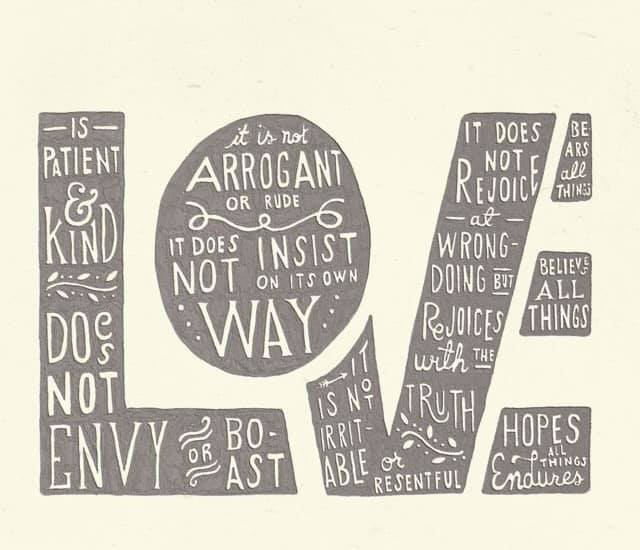 IS
PATIENT
&
KIND
DOES
NOT
ENVY OR BO-
AST
it is not
ARROGANT
OR RUDE
IT DOES
NOT
INSIST
ON ITS OWN
WAY
IT
IS NOT
IRRIT-
ABLE or
RESENTFUL
IT DOES
NOT
REJOICE
at
WRONG-
DOING BUT
REJOICES
with THE
TRUTH
BE-
ARS
all
THINGS
BELIEVE
ALL
THINGS
HOPES
ALL
THINGS
Endures